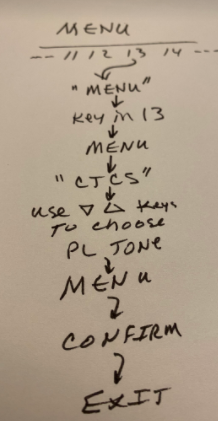 MENU
-- 11 12 13 14 ---
"MENU"
Key in 13
MENU
"CTCS"
use ▽ △ Keys
To choose
PL TONE
MENU
CONFIRM
EXIT